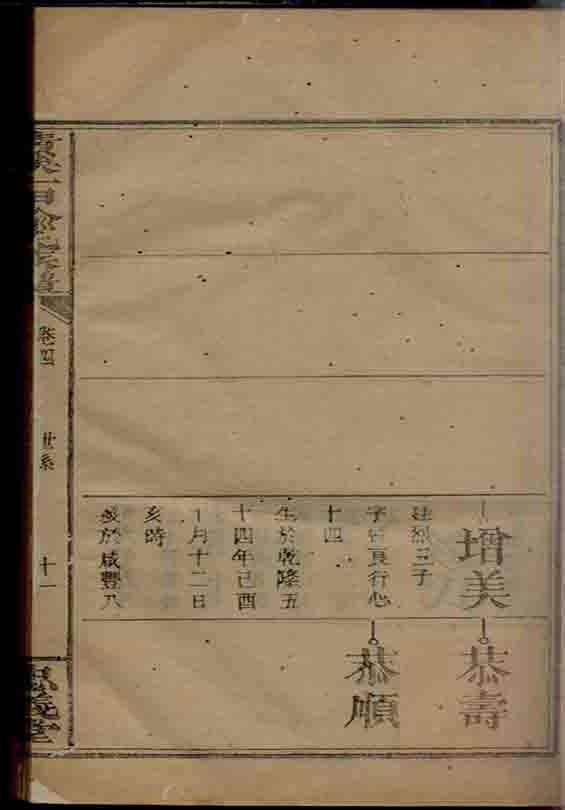 增美
廷烈三子
字曰良行心
十四
生於乾隆五
十四年己酉
十月十二日
亥時
歿於咸豐八
恭壽
恭順
卷四
世系
十一